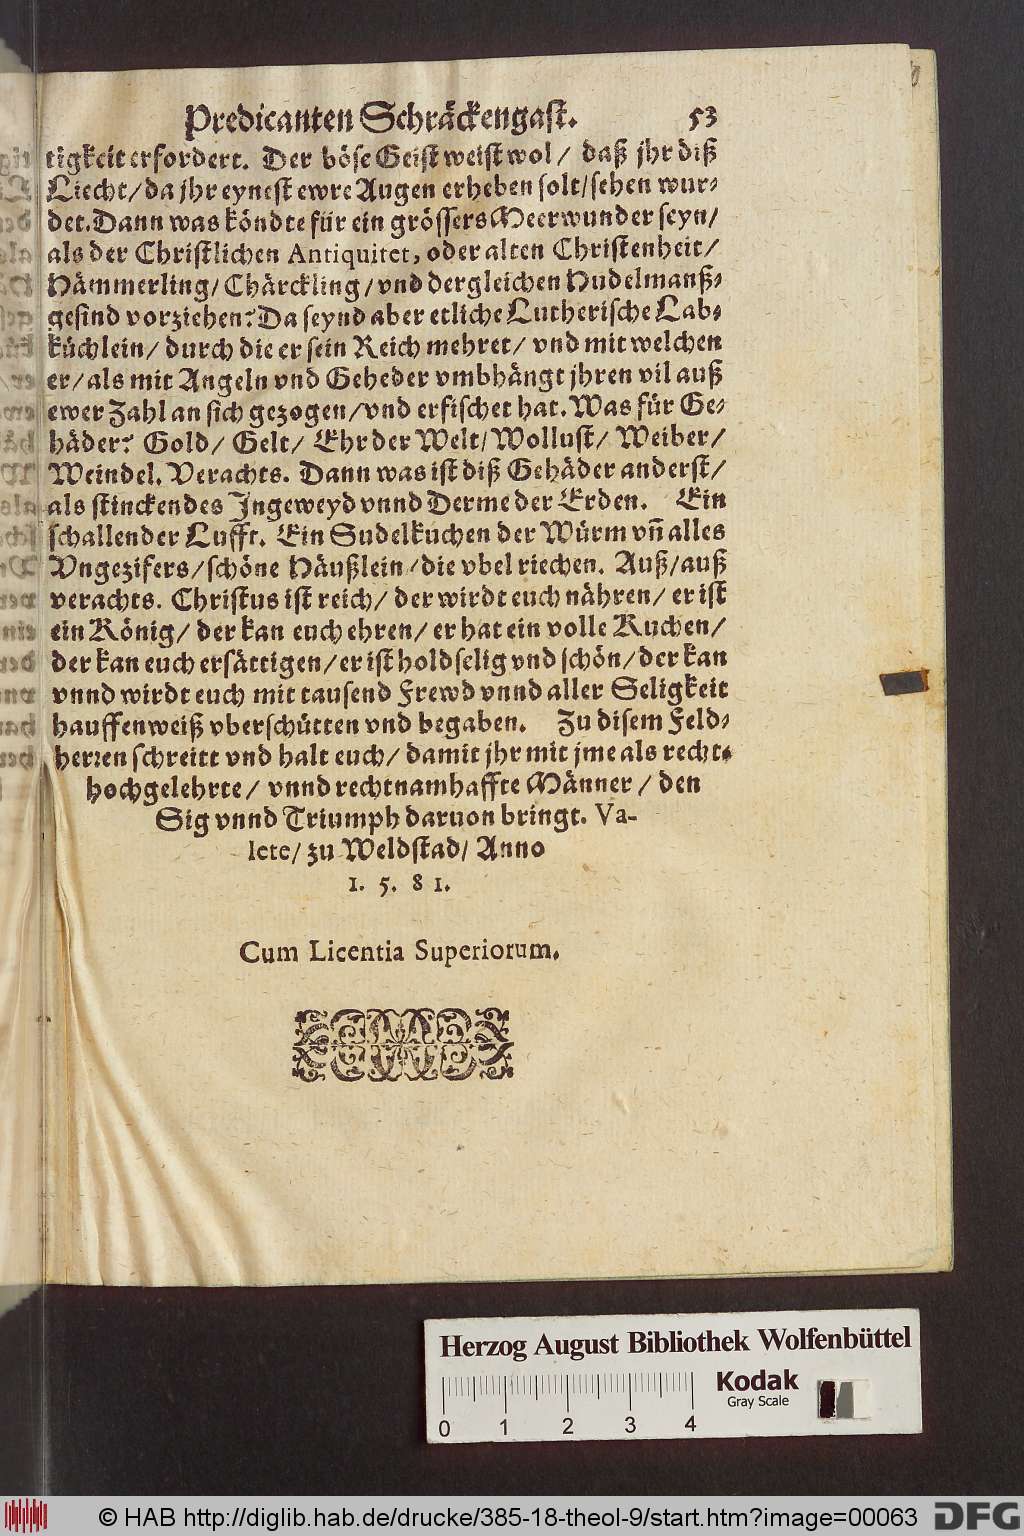 Predicanten Schräckengast. 53
tigkeit erfordert. Der böse Geist weist wol / daß jhr diß
Liecht / da jhr eynest ewre Augen erheben solt / sehen wur-
det. Dann was köndte für ein grössers Meerwunder seyn /
als der Christlichen Antiquitet, oder alten Christenheit /
Hämmerling / Chärckling / vnd dergleichen Hudelmanß-
gesind vorziehen? Da seynd aber etliche Lutherische Lab-
küchlein / durch die er sein Reich mehret / vnd mit welchen
er / als mit Angeln vnd Geheder vmbhängt jhren vil auß
ewer Zahl an sich gezogen / vnd erfischet hat. Was für Ge-
häder? Gold / Gelt / Ehr der Welt / Wollust / Weiber /
Weindel. Verachts. Dann was ist diß Gehäder anderst /
als stinckendes Jngeweyd vnnd Derme der Erden. Ein
schallender Lufft. Ein Sudelkuchen der Würm vñ alles
Vngezifers / schöne Häußlein / die vbel riechen. Auß / auß
verachts. Christus ist reich / der wirdt euch nähren / er ist
ein König / der kan euch ehren / er hat ein volle Kuchen /
der kan euch ersättigen / er ist holdselig vnd schön / der kan
vnnd wirdt euch mit tausend Frewd vnnd aller Seligkeit
hauffenweiß vberschütten vnd begaben. Zu disem Feld-
herren schreitt vnd halt euch / damit jhr mit jme als recht-
hochgelehrte / vnnd rechtnamhaffte Männer / den
Sig vnnd Triumph daruon bringt. Va-
lete / zu Weldstad / Anno
1. 5. 8 1.
Cum Licentia Superiorum.
Herzog August Bibliothek Wolfenbüttel
Kodak
Gray Scale
0 1 2 3 4
© HAB http://diglib.hab.de/drucke/385-18-theol-9/start.htm?image=00063
DFG